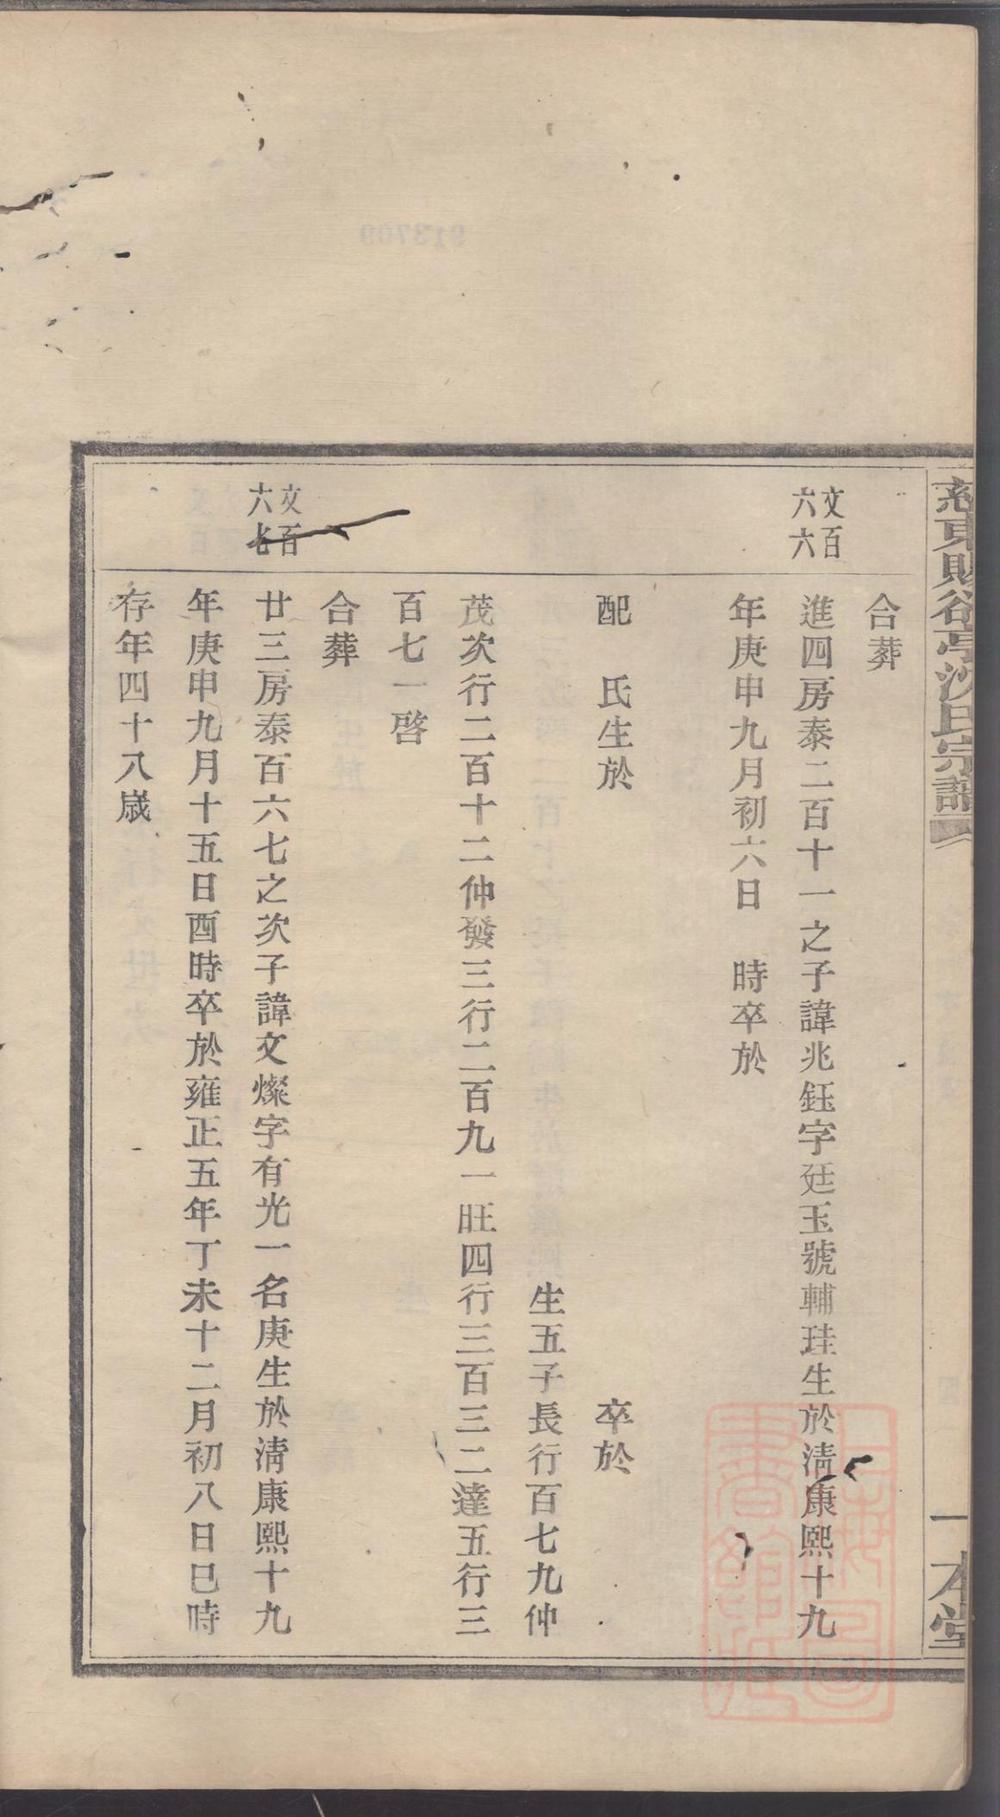 慈東財谷亭沙氏宗譜
一本堂
合葬
文百六六
進四房泰二百十一之子諱兆鈺字廷玉號輔珪生於淸康熙十九
年庚申九月初六日 時卒於
配 氏生於 卒於
生五子長行百七九仲
茂次行二百十二仲發三行二百九一旺四行三百三二達五行三
百七一啓
合葬
文百六七
廿三房泰百六七之次子諱文燦字有光一名庚生於淸康熙十九
年庚申九月十五日酉時卒於雍正五年丁未十二月初八日巳時
存年四十八歲